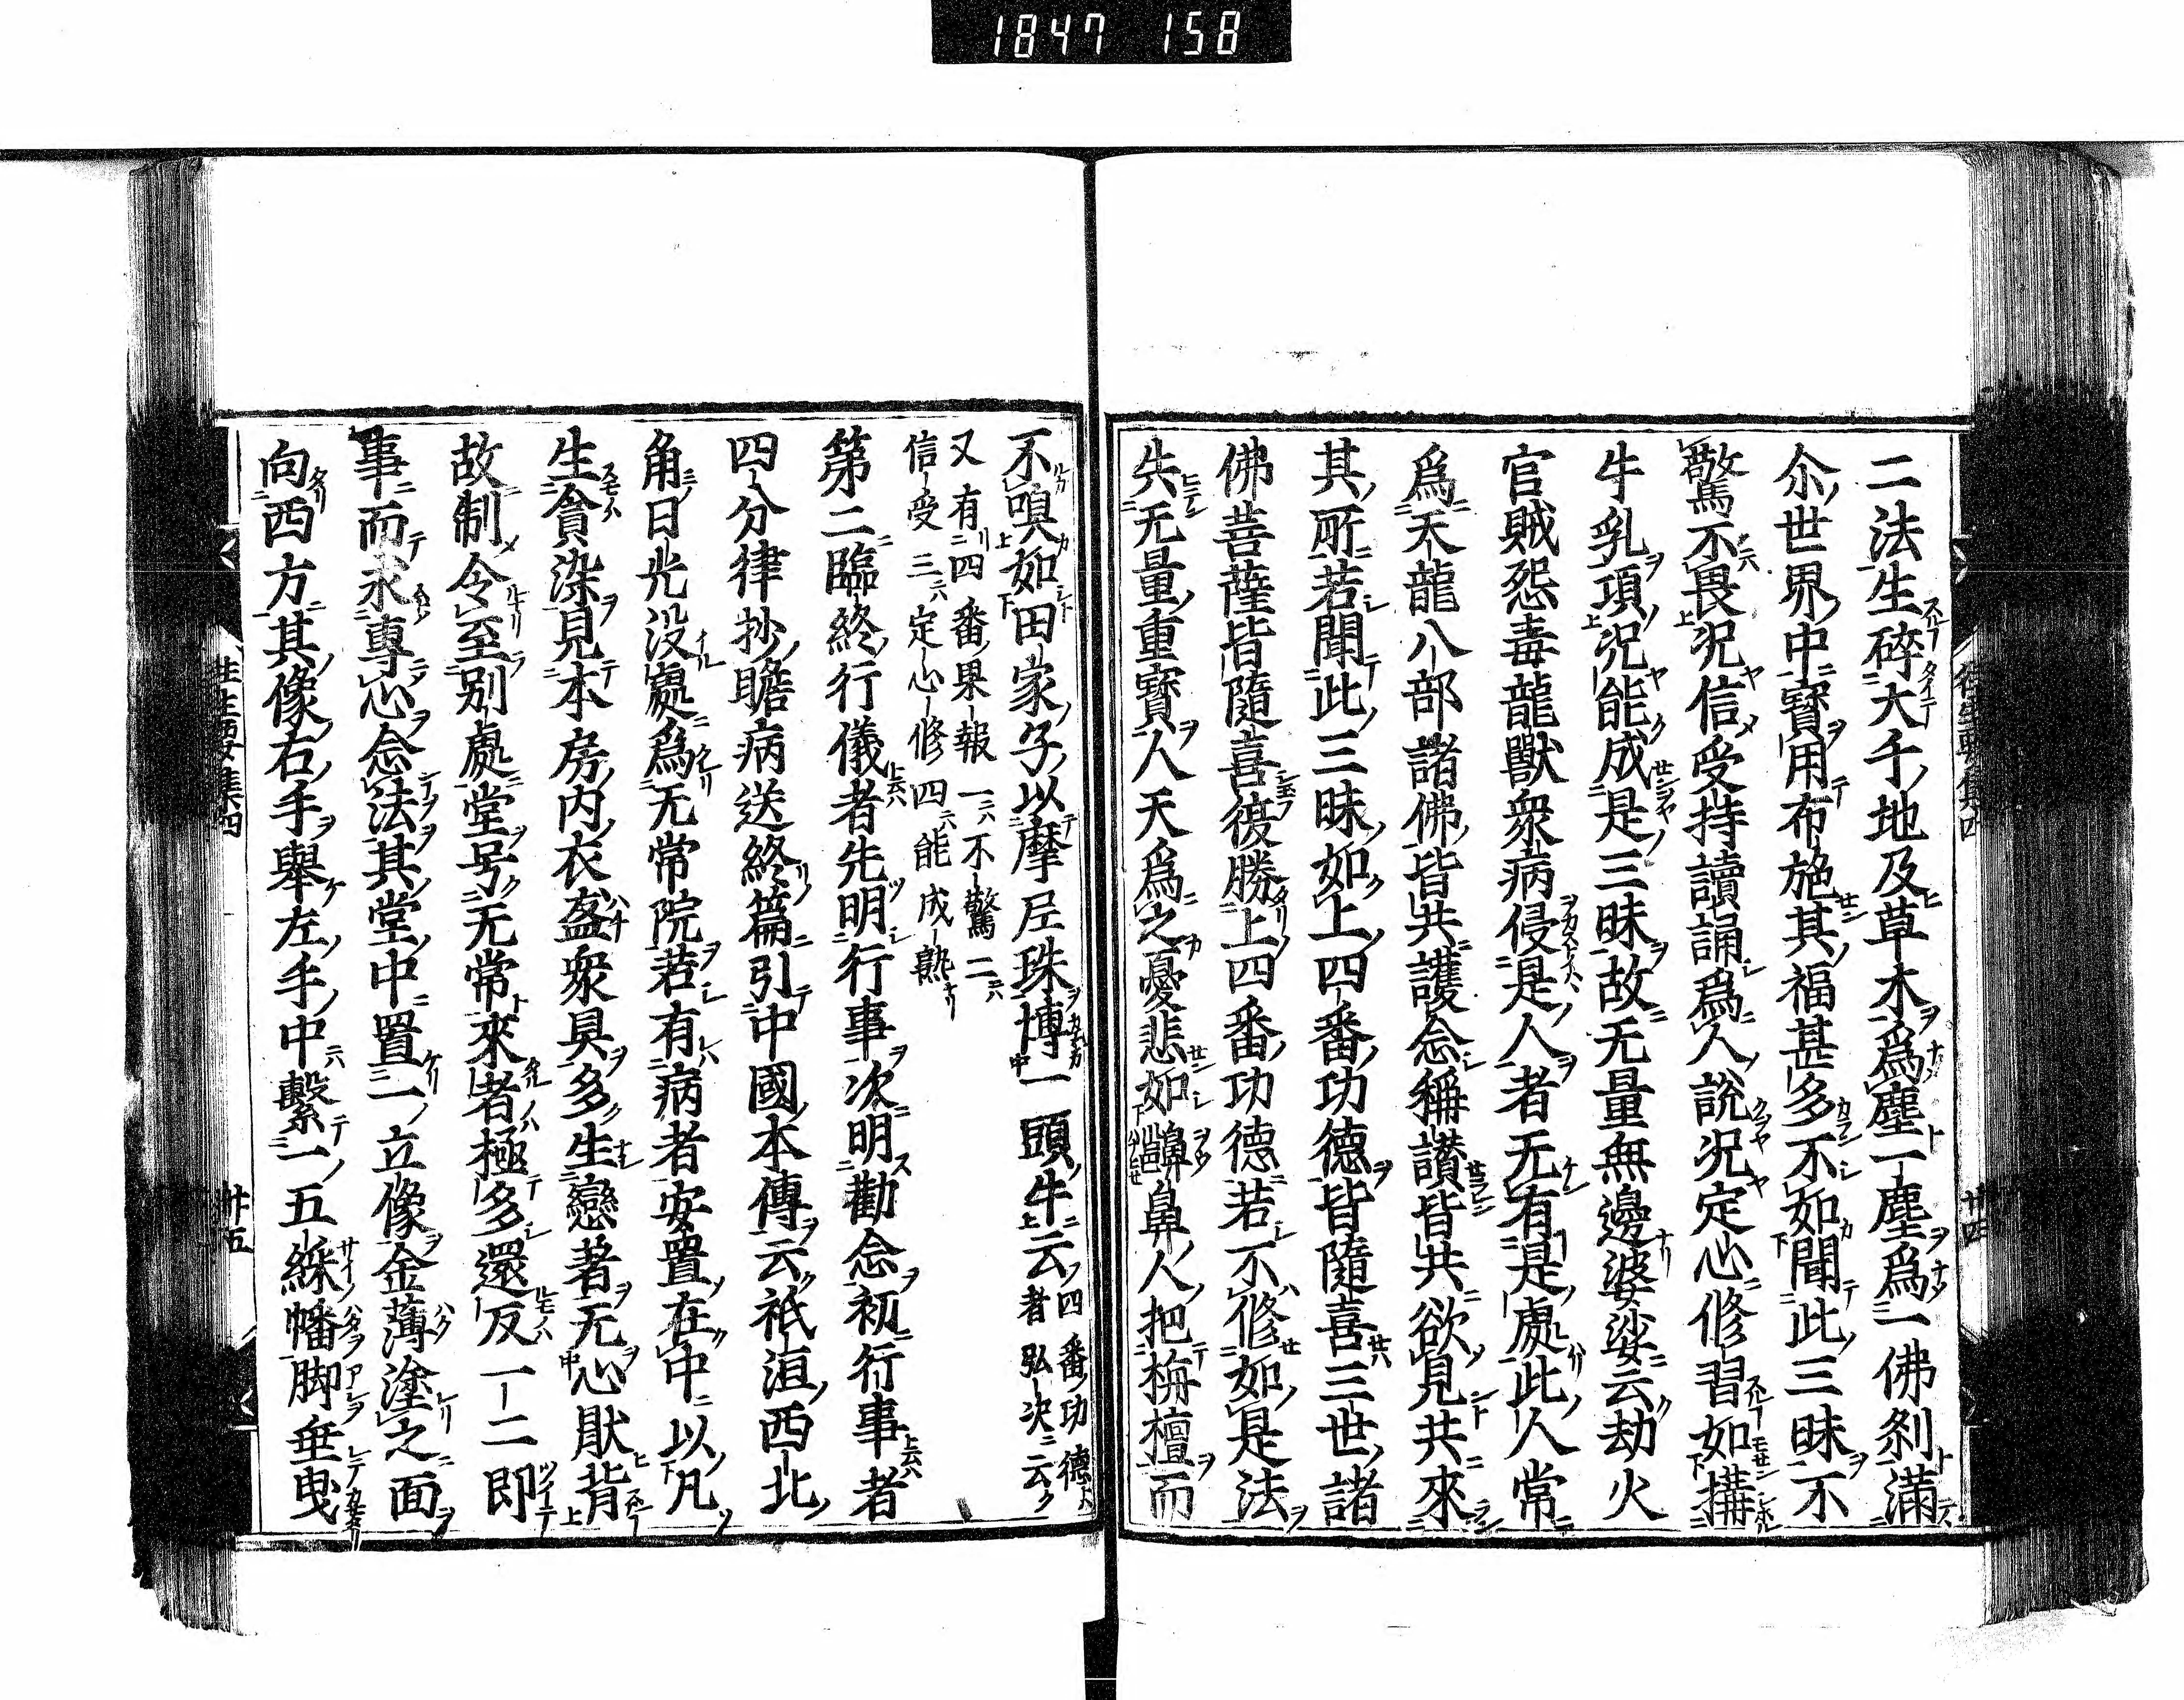 1847 158
二法生碎大千地及草木爲塵一塵爲一佛刹滿
尒世界中寶用布施其福甚多不如聞此三昧不
驚不畏况信受持讀誦爲人說况定心修習如搆
牛乳項况能成是三昧故无量無邊婆娑云劫火
官賊怨毒龍獸衆病侵是人者无有是處此人常
爲天龍八部諸佛皆共護念稱讃皆共欲見共來
其所若聞此三昧如上四番功德皆隨喜三世諸
佛菩薩皆隨喜彼勝上四番功德若不修如是法
失无量重寶人天爲之憂悲如齆鼻人把栴檀而
往生要集四 廿四
不嗅如田家子以摩尼珠博一頭牛云四番功德者弘决云
又有四番果報一不驚二
信受三定心修四能成熟
第二臨終行儀者先明行事次明勸念初行事者
四分律抄瞻病送終篇引中國本傳云祇洹西北
角日光没處爲无常院若有病者安置在中以凡
生貪染見本房内衣盋衆具多生戀著无心猒背
故制令至别處堂号无常來者極多還反一二即
事而求專心念法其堂中置一立像金薄塗之面
向西方其像右手舉左手中繫一五綵幡脚垂曳
往生要集四 廿五